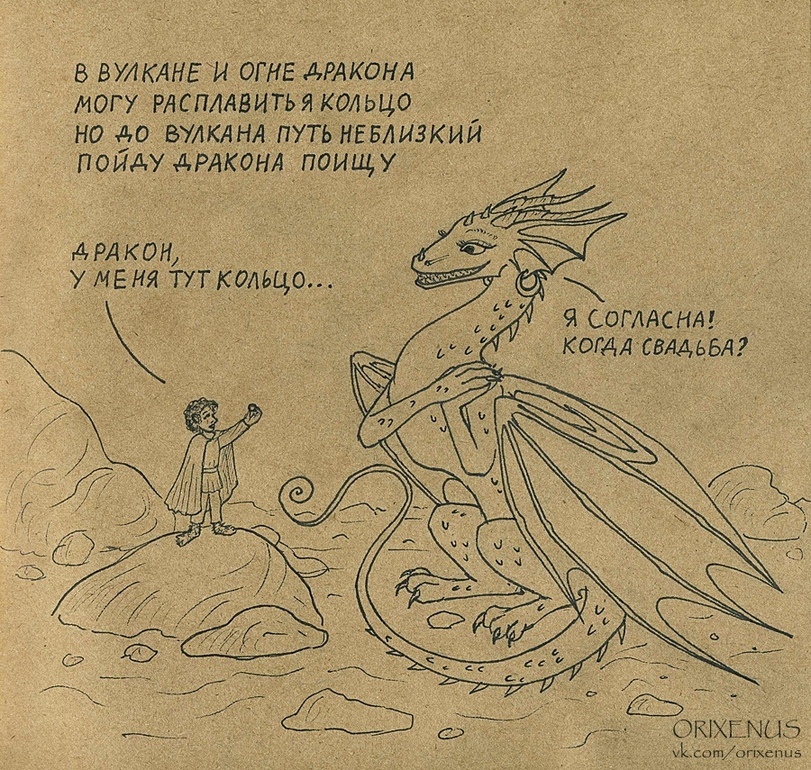 В ВУЛКАНЕ И ОГНЕ ДРАКОНА
МОГУ РАСПЛАВИТЬ Я КОЛЬЦО
НО ДО ВУЛКАНА ПУТЬ НЕБЛИЗКИЙ
ПОЙДУ ДРАКОНА ПОИЩУ
ДРАКОН,
У МЕНЯ ТУТ КОЛЬЦО...
Я СОГЛАСНА!
КОГДА СВАДЬБА?
ORIXENUS
vk.com/orixenus